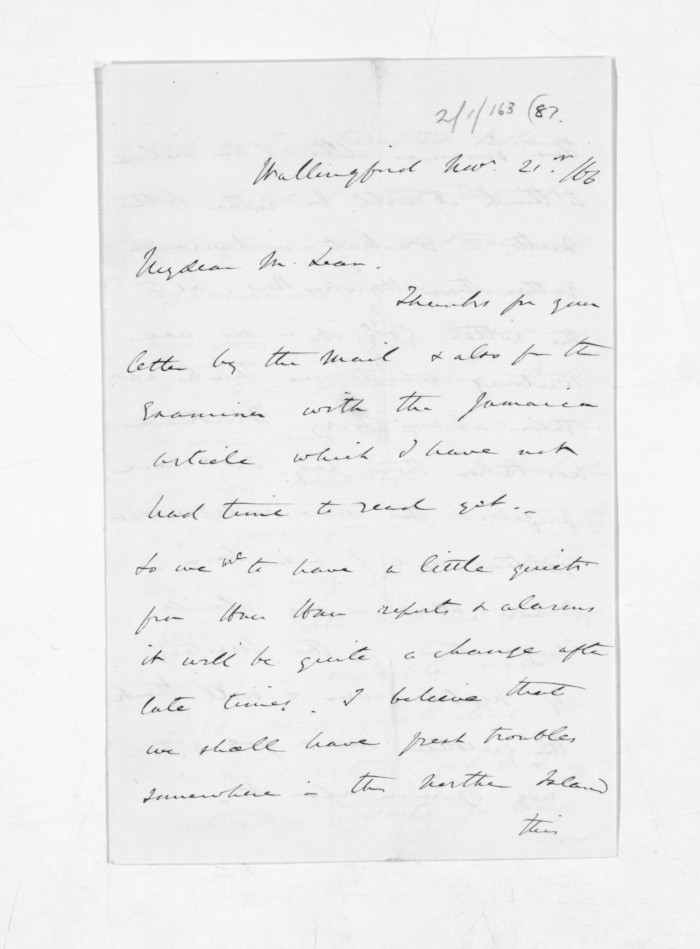 2/1/163 (87.
Wallingford Novr. 21st/66
My dear Mc Lean.
Thanks for your
letter by the mail & also for the
Examiner with the Jamaica
article which I have not
had time to read yet. _
So we to have a little quiet
from Hau Hau reports & alarms
it will be quite a change after
late times. I believe that
we shall have fresh troubles
somewhere in this Northern Island
this